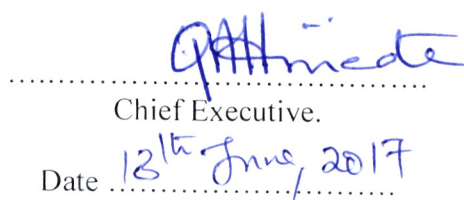 Chief Executive.
Date 13th June, 2017